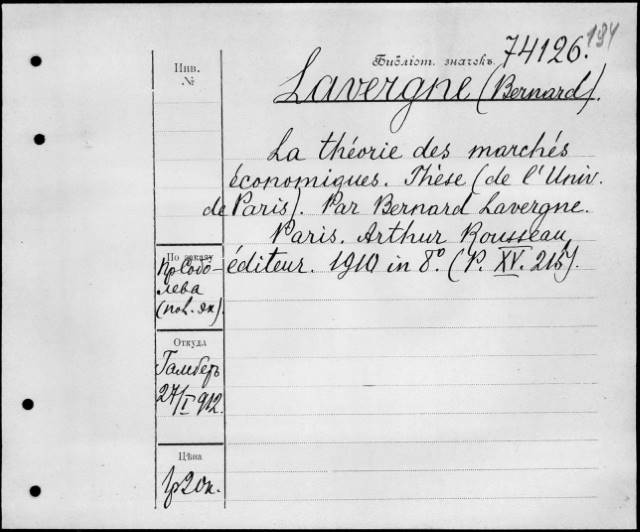 74126. 134
Библіот. значокъ
Lavergne (Bernard).
Инв.
№
La théorie des marchés
économiques. Thèse (de l'Univ.
de Paris). Par Bernard Lavergne.
Paris. Arthur Rousseau,
éditeur. 1910 in 8°. (P. XV. 215).
По заказу
Пр. Собо-
лева
(пол. эк).
Откуда
Гамберъ
27/I 912.
Цѣна
1р 20к.